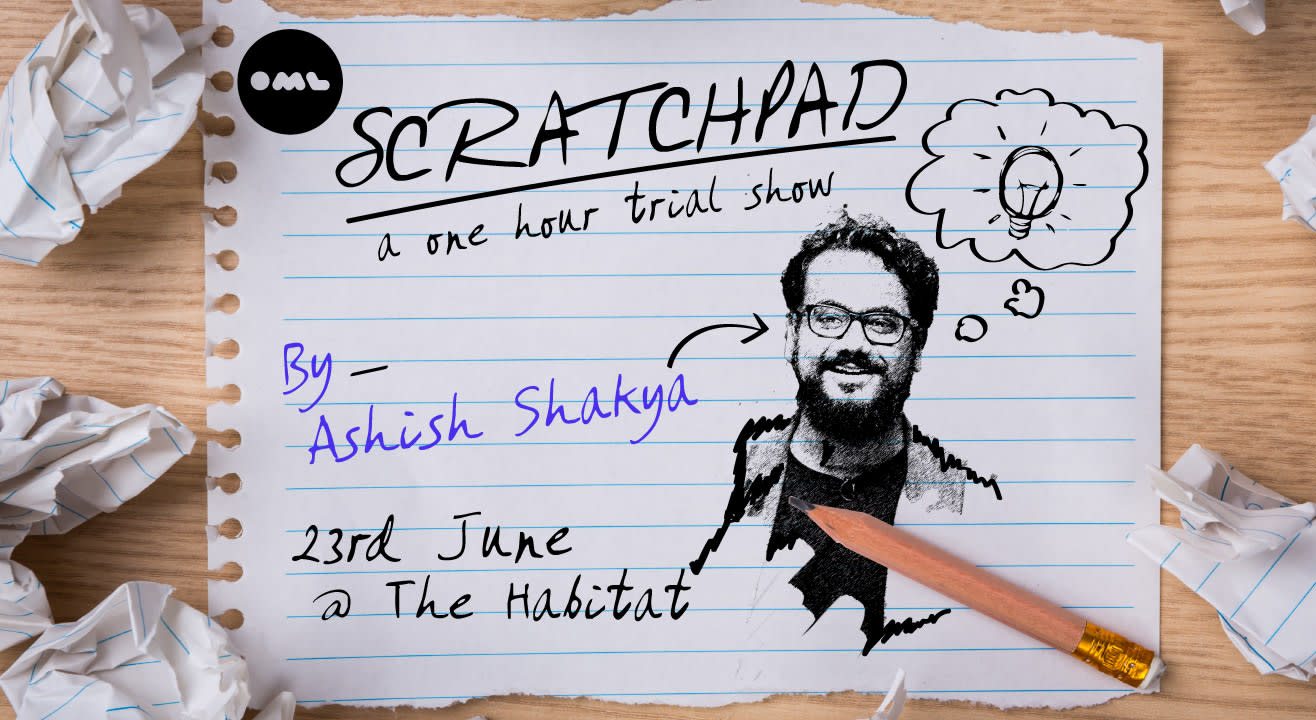 OML
SCRATCHPAD
a one hour trial show
By –
Ashish Shakya
23rd June
@ The Habitat